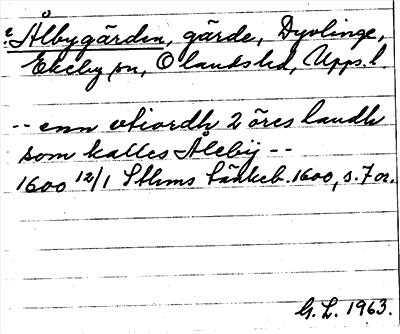 ? Ålbygärden, gärde, Dyvlinge,
Ekeby sn, Olands hd, Upps. l.
-- enn vtiordh 2 öres landh
som kalles Åleby --
1600 12/1 Sthms tänkeb. 1600, s. 7 or.
G. L. 1963.